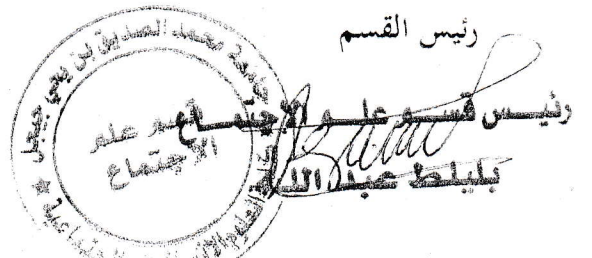 رئيس القسم
رئيس قسم علم الاجتماع
بليلط عبد الله
جامعة محمد الصديق بن يحي جيجل
قسم علم
الاجتماع